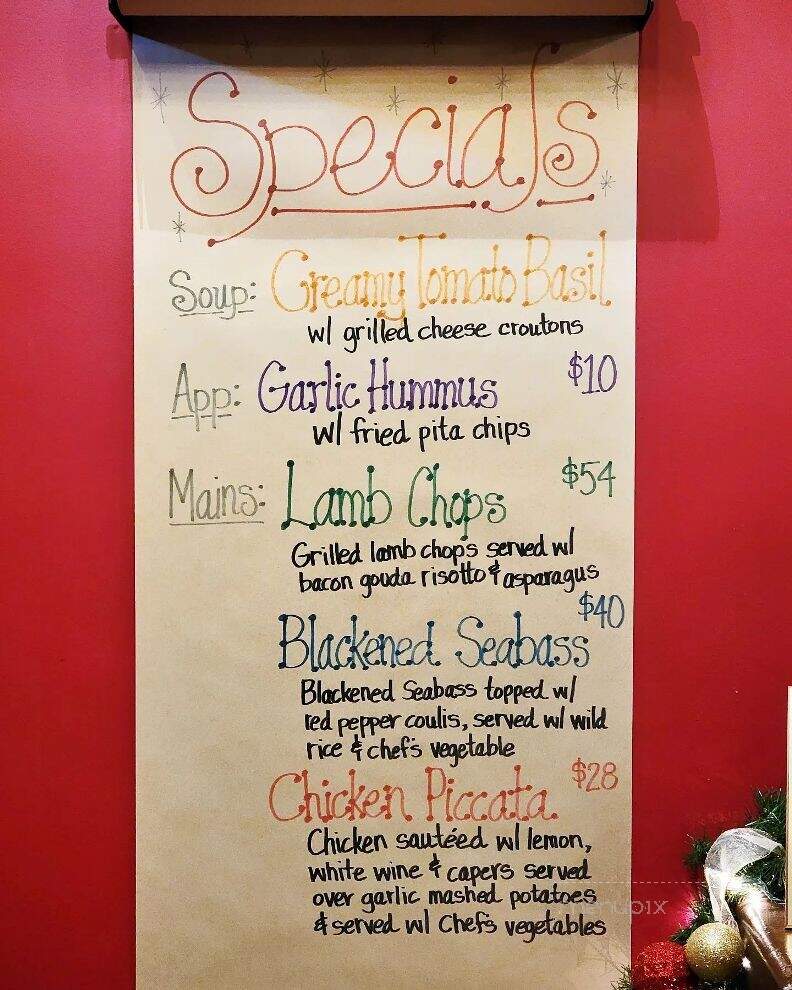 Specials
Soup: Creamy Tomato Basil
w/ grilled cheese croutons
App: Garlic Hummus $10
w/ fried pita chips
Mains: Lamb Chops $54
Grilled lamb chops served w/
bacon gouda risotto & asparagus
$40
Blackened Seabass
Blackened Seabass topped w/
red pepper coulis, served w/ wild
rice & chef's vegetable
Chicken Piccata $28
Chicken sautéed w/ lemon,
white wine & capers served
over garlic mashed potatoes
& served w/ Chef's vegetables